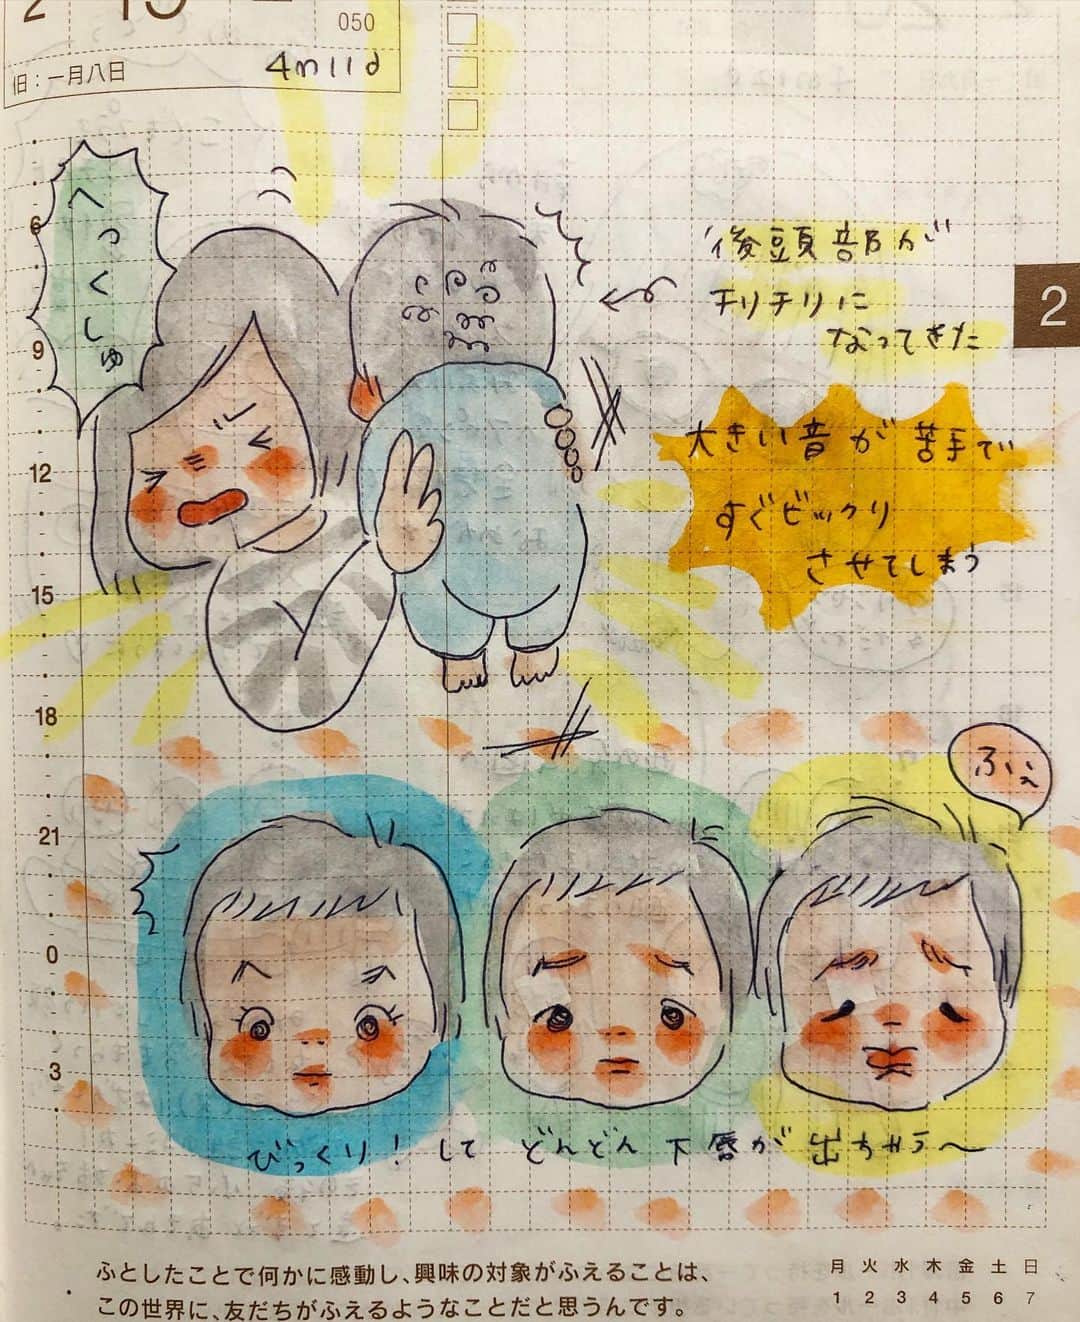 050
旧：一月八日
4m11d
へっくしゅ
後頭部が
チリチリに
なってきた
大きい音が苦手で
すぐビックリ
させてしまう
2
6
9
12
15
18
21
0
3
ふぇぇ
びっくり！して どんどん下唇が出ちゃう〜
ふとしたことで何かに感動し、興味の対象がふえることは、
この世界に、友だちがふえるようなことだと思うんです。
月 火 水 木 金 土 日
1 2 3 4 5 6 7